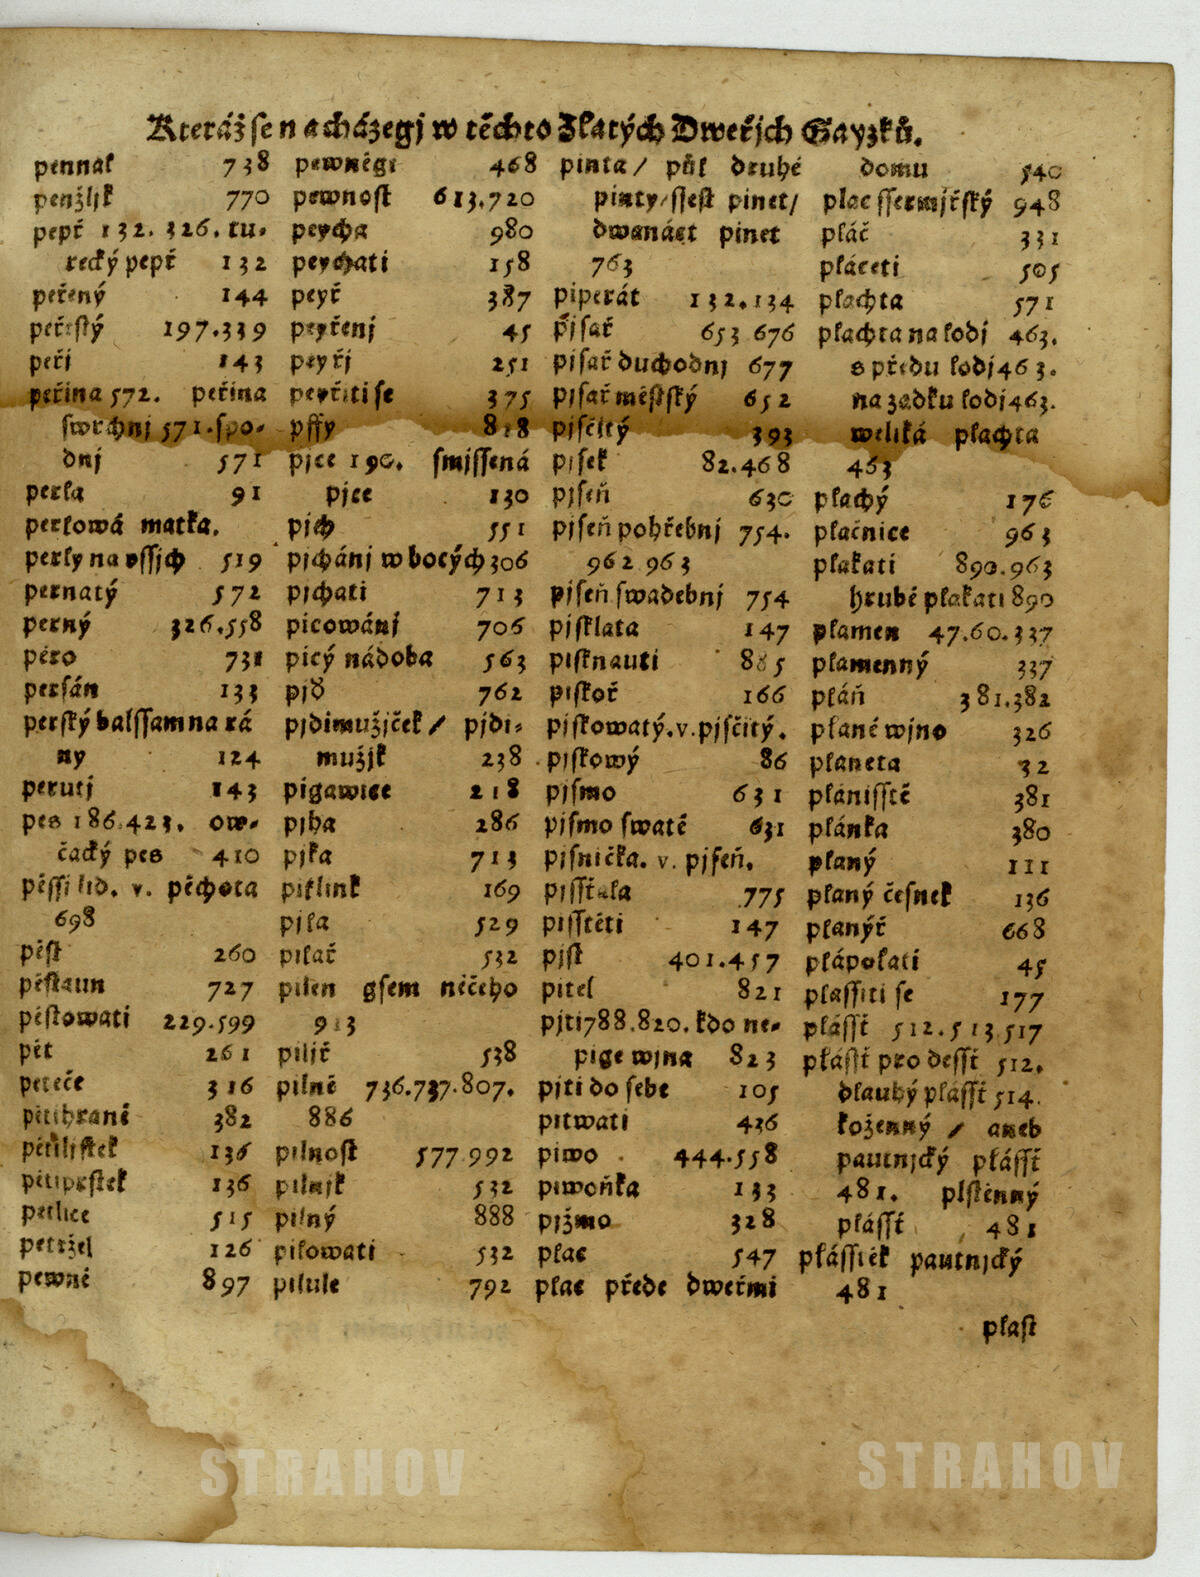 Kteráž se nacházegj w těchto Zlatých Dweřjch Gazyků.
pennal 738
penžljk 770
pepř 132. 326. tu-
recký pepř 132
peřený 144
peřestý 197.339
peřj 143
peřina 572. peřina
swrchnj 571. spo-
dnj 571
perla 91
perlowá matka.
perly na vssjch 519
pernatý 572
perný 326.558
péro 731
persán 133
perský balssam na rá
ny 124
perutj 143
pes 186.423. ow-
čacký pes 410
pěssj lid. v. pěchota
698
pěst 260
pěstaun 727
pěstowati 229.599
pět 261
peteče 316
pětihrané 382
pětiljstek 136
pětiprstek 136
petlice 515
petržel 126
pewné 897
pewněgi 468
pewnost 613.720
peycha 980
peychati 158
peyř 387
peyřenj 45
peyřj 251
peyřiti se 375
pffy 828
pjce 190. smjssená
pjce 130
pjch 551
pjchánj w bocých 306
pjchati 713
picowánj 706
picý nádoba 563
pjď 762
pjdimužjček / pjdi-
mužjk 238
pigawice 218
pjha 286
pjka 713
piklink 169
pjla 529
pilař 532
pilen gsem něčeho
913
piljř 538
pilně 736.737.807.
886
pilnost 577.992
pilnjk 532
pilný 888
pilowati 532
pilule 792
pinta / půl druhé
pinty / ssest pinet /
dwanáct pinet
763
piperát 132.134
pjsař 653 676
pjsař duchodnj 677
pjsař městský 652
pjsčitý 393
pjsek 82.468
pjseň 630
pjseň pohřebnj 754.
962 963
pjseň swadebnj 754
pjsklata 147
pisknauti 885
piskoř 166
pjskowatý. v. pjsčitý.
pjskowý 86
pjsmo 631
pjsmo swaté 631
pjsnička. v. pjseň.
pjssťala 775
pisstěti 147
pjst 401.457
pitel 821
pjti 788.820. kdo ne-
pige wjna 823
pjti do sebe 105
pitwati 436
piwo 444.558
piwoňka 133
pjžmo 328
plac 547
plac přede dweřmi
domu 540
plac ssermjřský 948
pláč 331
pláceti 505
plachta 571
plachta na lodj 463.
s předu lodj 463.
na zadku lodj 463.
weliká plachta
463
plachý 176
plačnice 963
plakati 890.963
hrubě plakati 890
plamen 47.60.337
plamenný 337
pláň 381.382
plané wjno 326
planeta 32
plánisstě 381
plánka 380
planý 111
planý česnek 136
planýř 668
plápolati 45
plassiti se 177
plássť 512.513.517
plássť pro dessť 512.
dlauhý plássť 514.
koženný / aneb
pautnjcký plássť
481. plstěnný
plássť 481
plásstěk pautnjcký
481
plast
STRAHOV
STRAHOV